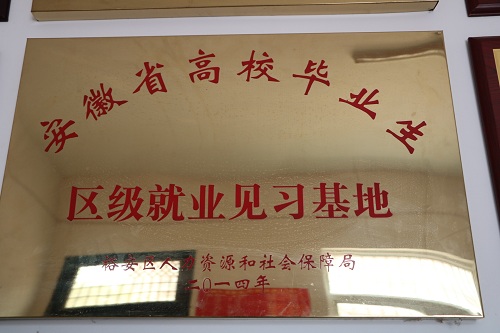 安徽省高校毕业生
区级就业见习基地
裕安区人力资源和社会保障局
二〇一四年